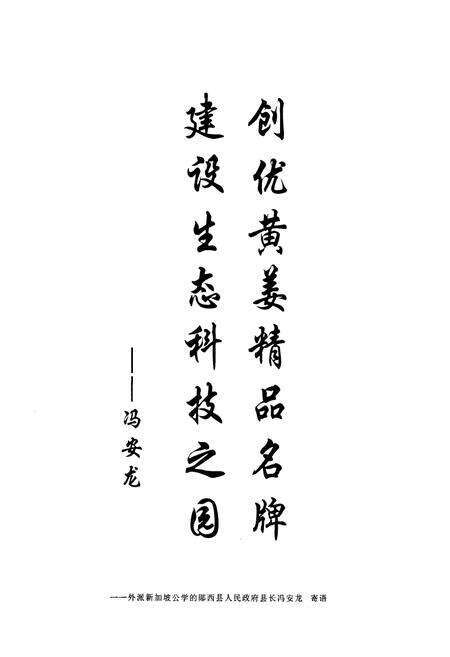 创优黄姜精品名牌
建设生态科技之园
——冯安龙
——外派新加坡公学的郧西县人民政府县长冯安龙 寄语